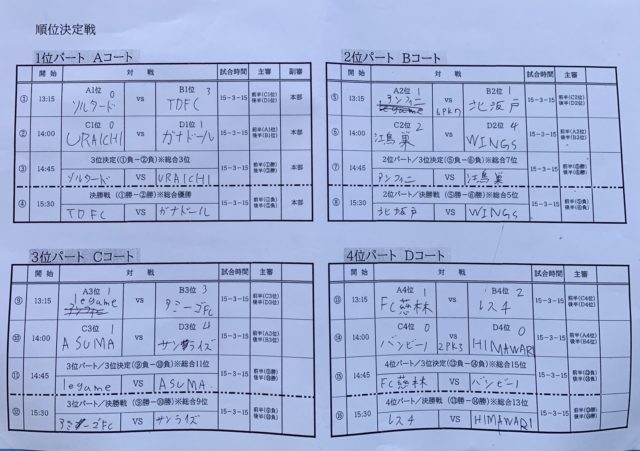 順位決定戦
1位パート Aコート
開始 対戦 試合時間 主審 副審
① 13:15 A1位 0 ソルタード vs B1位 3 TDFC 15-3-15 前半(C1位) 後半(D1位) 本部
② 14:00 C1位 0 URAICHI vs D1位 1 ガナドール 15-3-15 前半(A1位) 後半(B1位) 本部
③ 14:45 3位決定(①負ー②負)※総合3位 15-3-15 前半(①勝) 後半(②勝) 本部
ソルタード vs URAICHI
④ 15:30 決勝戦 (①勝ー②勝)※総合優勝 15-3-15 前半(①負) 後半(②負) 本部
TDFC vs ガナドール
2位パート Bコート
開始 対戦 試合時間 主審
⑤ 13:15 A2位 1 アンフィニ vs 6PK7 B2位 1 北坂戸 15-3-15 前半(C2位) 後半(D2位)
⑥ 14:00 C2位 2 江鳥巣 vs D2位 4 WINGS 15-3-15 前半(A2位) 後半(B2位)
⑦ 14:45 2位パート/3位決定(⑤負ー⑥負)※総合7位 15-3-15 前半(⑤勝) 後半(⑥勝)
アンフィニ vs 江鳥巣
⑧ 15:30 2位パート/決勝戦 (⑤勝ー⑥勝)※総合5位 15-3-15 前半(⑤負) 後半(⑥負)
北坂戸 vs WINGS
3位パート Cコート
開始 対戦 試合時間 主審
⑨ 13:15 A3位 1 legame vs B3位 3 アミーゴFC 15-3-15 前半(C3位) 後半(D3位)
⑩ 14:00 C3位 1 ASUMA vs D3位 サンライズ 15-3-15 前半(A3位) 後半(B3位)
⑪ 14:45 3位パート/3位決定(⑨負ー⑩負)※総合11位 15-3-15 前半(⑨勝) 後半(⑩勝)
legame vs ASUMA
⑫ 15:30 3位パート/決勝戦 (⑨勝ー⑩勝)※総合9位 15-3-15 前半(⑨負) 後半(⑩負)
アミーゴFC vs サンライズ
4位パート Dコート
開始 対戦 試合時間 主審
⑬ 13:15 A4位 1 FC慈林 vs B4位 2 レスチ 15-3-15 前半(C4位) 後半(D4位)
⑭ 14:00 C4位 0 バンビーノ vs 2PK3 D4位 0 HIMAWARI 15-3-15 前半(A4位) 後半(B4位)
⑮ 14:45 4位パート/3位決定(⑬負ー⑭負)※総合15位 15-3-15 前半(⑬勝) 後半(⑭勝)
FC慈林 vs バンビーノ
⑯ 15:30 4位パート/決勝戦 (⑬勝ー⑭勝)※総合13位 15-3-15 前半(⑬負) 後半(⑭負)
レスチ vs HIMAWARI